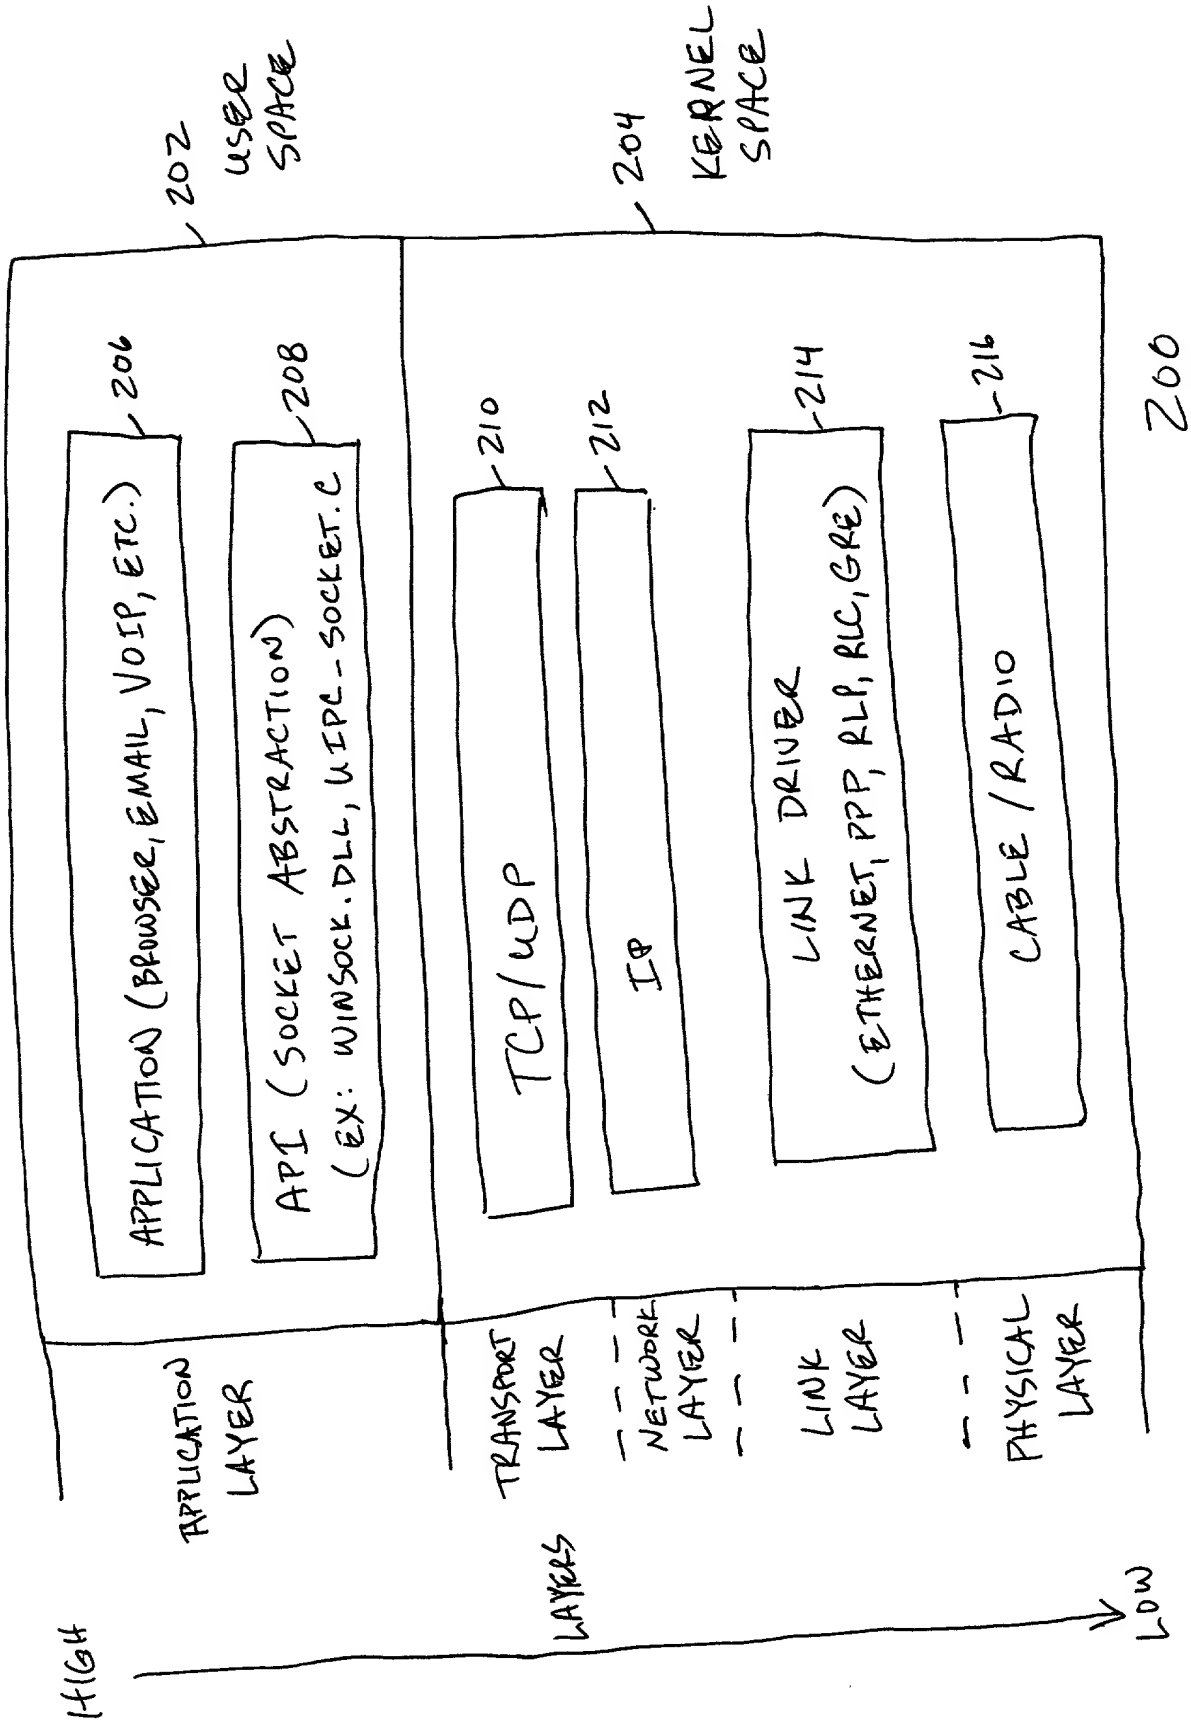 HIGH
LAYERS
LOW
APPLICATION
LAYER
TRANSPORT
LAYER
NETWORK
LAYER
LINK
LAYER
PHYSICAL
LAYER
APPLICATION (BROWSER, EMAIL, VOIP, ETC.)
206
API (SOCKET ABSTRACTION)
(EX: WINSOCK.DLL, UIPC-SOCKET.C
208
TCP/UDP
210
IP
212
LINK DRIVER
(ETHERNET, PPP, RLP, RLC, GRE)
214
CABLE/RADIO
216
202
USER
SPACE
204
KERNEL
SPACE
200